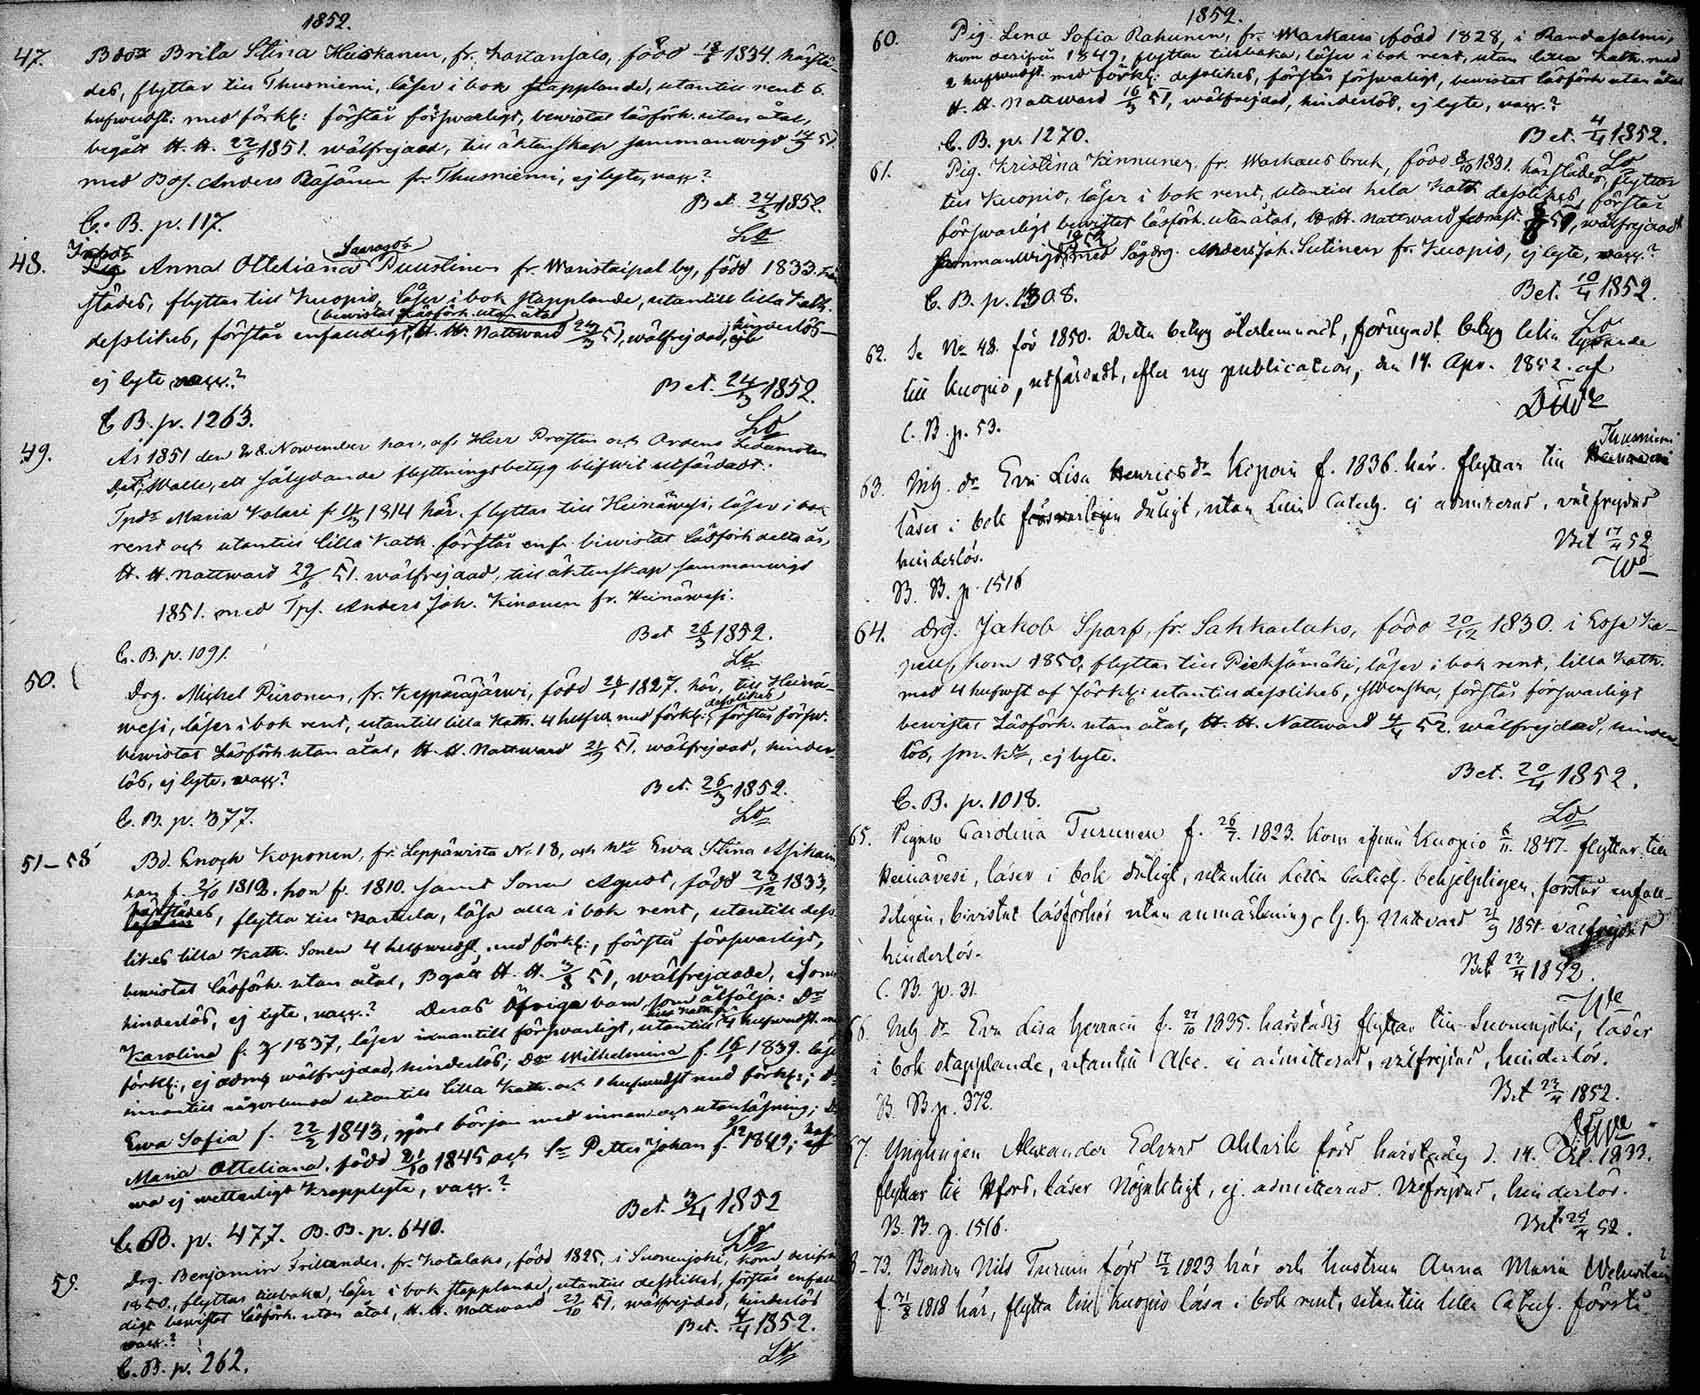 1852.
47. Bdr Brita Stina Heiskanen, fr. hartansalo, född 1834. härstä-
des, flyttar till Thusniemi, läser i bok stapplande, utantill rent 6
hufwudst: med förkl: förstår förswarligt, bewistat läsförh. utan åtal,
begått H. H. 22/6 1851. wälfrejdad, till äktenskap sammanwigd
med Bos. Anders Räsänen fr. Thusniemi, ej lyte, vacc?
Bet. 24/3 1852.
C. B. p. 117.
48. Anna Otteliana Puustinen fr. by, född 1833. här
städes, flyttar till Kuopio, läser i bok stapplande, utantill lilla Kath.
(bewistat läsförh. utan åtal
desslikes, förstår enfaldigt, H. H. Nattward 51, wälfrejdad, hinderlös
ej lyte vacc.?
Bet. 24/3 1852.
C B. p. 1263.
49. År 1851 den 28 November har, af Herr Prosten och Ordens Ledamoten
Walle, ett sålydande flyttningsbetyg blifwit utfärdadt:
Maria Kolari f. 1814 här, flyttar till Heinäwesi, läser i bok
rent och utantill lilla Kath. förstår enf. bewistat läsförh. detta år,
H. H. Nattward 29/6 51. wälfrejdad, till äktenskap sammanwigd
1851. med Anders Joh. Kinanen fr. Heinäwesi.
Bet 26/3 1852.
C. B. p. 1091.
50. Drg. Michel Piironen, fr. , född 1827. här, till Heinä-
wesi, läser i bok rent, utantill lilla Kath. 4 hufw. med förkl: desslikes förstår försw.
bewistat Läsförh. utan åtal, H. H. Nattward 51. wälfrejdad, hinder-
lös, ej lyte, vacc?
Bet. 26/3 1852.
C. B. p. 377.
51–58 Bd. Enoch Koponen, fr. Leppäwirta No 18, och Ewa Stina Asikain
han f. 1812. hon f. 1810. samt Sonen August, född 23/12 1833,
härstädes, flytta till , läsa alla i bok rent, utantill dess-
likes lilla Kath. Sonen 4 hufwudst. med förkl:, förstå förswarligt,
bewistat läsförh. utan åtal, Begått H. H. 3/8 51, wälfrejdade, Sonen
hinderlös, ej lyte, vacc.? Deras öfriga barn, som åtfölja: Dr
Karolina f. 1837, läser innantill förswarligt, utantill 4 hufwudst. med
förkl:, ej adm, wälfrejdad, hinderlös; Dr Wilhelmina f. 1839. läser
innantill någorlunda utantill lilla Kath. och 1 hufwudst med förkl:;
Ewa Sofia f. 22/2 1843, gjort början med innan och utanläsning;
Maria Otteliana, född 21/10 1845 och Sn Petter Johan f. 1849;
wa ej wetterligt Kroppslyte, vacc.?
Bet. 3/4 1852
C. B. p. 477. B. B. p. 640.
59. Drg. Benjamin , fr. Kotalaks, född 1825. i Suonenjoki, kom derifrån
1850., flyttar tillbaka, läser i bok stapplande, utantill desslikes, förstår enfal-
digt bewistat läsförh. utan åtal, H. H. Nattward 10 51, wälfrejdad, hinderlös
vacc.?
Bet. 4/4 1852.
C. B. p. 262.
1852.
60. Pig. Lena Sofia Rahunen, fr. Warkaus född 1828, i Randasalmi,
kom derifrån 1849, flyttar tillbaka, läser i bok rent, utan lilla Kath. med
2 hufwudst. med förkl: desslikes, förstår förswarligt, bewistat läsförh utan åtal
H. H. Nattward 16/3 51, wälfrejdad, hinderlös, ej lyte, vacc.?
Bet. 4/4 1852.
C. B. p. 1270.
61. Pig. Kristina Kinnunen, fr. Warkaus bruk, född 1831. härstädes, flyttar
till Kuopio, läser i bok rent, utantill hela Kath. desslikes, förstår
förswarligt bewistat läsförh. utan åtal, H. H. Nattward 51, wälfrejdad
Sammanwigd 1852 med Sågdrg. Anders Joh. Sutinen fr. Kuopio, ej lyte, vacc?
Bet. 10/4 1852.
C. B. p. 1308.
62. Se No 48. för 1850. Detta betyg återlemnadt, förnyadt betyg lydande
till Kuopio, utfärdadt, efter ny publication, den 14. Apr. 1852. af
C. B. p. 53.
63. Mg. dr Eva Lisa Henricsdr f. 1836. här. flyttar till Thusniemi
läser i bok dåligt, utan Lilla Catech. ej admitterad, välfrejdad
hinderlös.
Bet 17/4 52
B. B. p. 1516
64. Drg. Jakob Sparf, fr. Sahkarlaks, född 20/12 1830. i Esse Ka-
pell, kom 1850, flyttar till Pieksämäki, läser i bok rent, lilla Kath.
med 4 hufwst af förkl: utantill desslikes, Swenska, förstår förswarligt
bewistat Läsförh. utan åtal, H. H. Nattward 4/4 52. wälfrejdad, hinder-
lös, , ej lyte.
Bet. 20/4 1852.
C. B. p. 1018.
65. Pigan Carolina Turunen f. 26/7. 1823. Kom ifrån Kuopio 6/11 1847. flyttar till
Heinävesi, läser i bok dåligt, utantill Lilla Catech. behjelpligen, förstår enfal-
deligen, bivistat läsförhör utan anmärkning, H. H. Nattvard 21/9 1851. välfrejdad
hinderlös.
Bet 23/4 1852.
C. B. p. 31.
66. Mg. dr Eva Lisa f. 27/10 1835. härstädes flyttar till Suonenjoki, läser
i bok stapplande, utantill Abc. ej admitterad, välfrejdad, hinderlös.
Bet 23/4 1852.
B. B p. 372.
67. Ynglingen Alexander Edvard Ahlvik född härstädes d. 14. 1833.
flyttar till , läser Nöjaktigt, ej admitterad. Välfrejdad, hinderlös.
Bet. 25/4 52.
B. B. p. 1516.
–73. Bonden Nils Turunen född 17/2 1823 här och hustrun Anna Maria
f. 21/8 1818 här, flytta till Kuopio läsa i bok rent, utantill lilla Catech. förstå